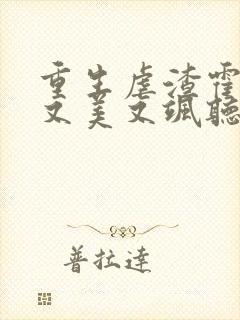 重生虐渣霍
又美又飒聽
普拉達